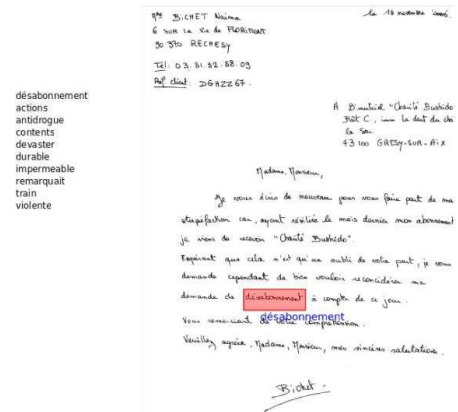 désabonnement
actions
antidrogue
contents
devaster
durable
impermeable
remarquait
train
violente
Mme BICHET Naima
6 SUR la Vie de FLORIMONT
90 370 RECHESY
Tél : 03.81.32.88.09
Ref client : DGHZZ67.
le 16 novembre 2006.
A Bimestriel "Chanité Bushido
Bât C.,
43 100 GRESY-SUR-AIX
Madame, Monsieur,
Je vous écris de nouveau pour vous faire part de ma
stupéfaction car, ayant résilié le mois dernier mon abonnement
je viens de recevoir "Chanité Bushido".
Espérant que cela n'est qu'un oubli de votre part, je vous
demande cependant de bien vouloir reconsidérer ma
demande de désabonnement à compter de ce jour.
désabonnement
Vous remerciant de votre compréhension.
Veuillez agréer, Madame, Monsieur, mes sincères salutations.
Bichet.